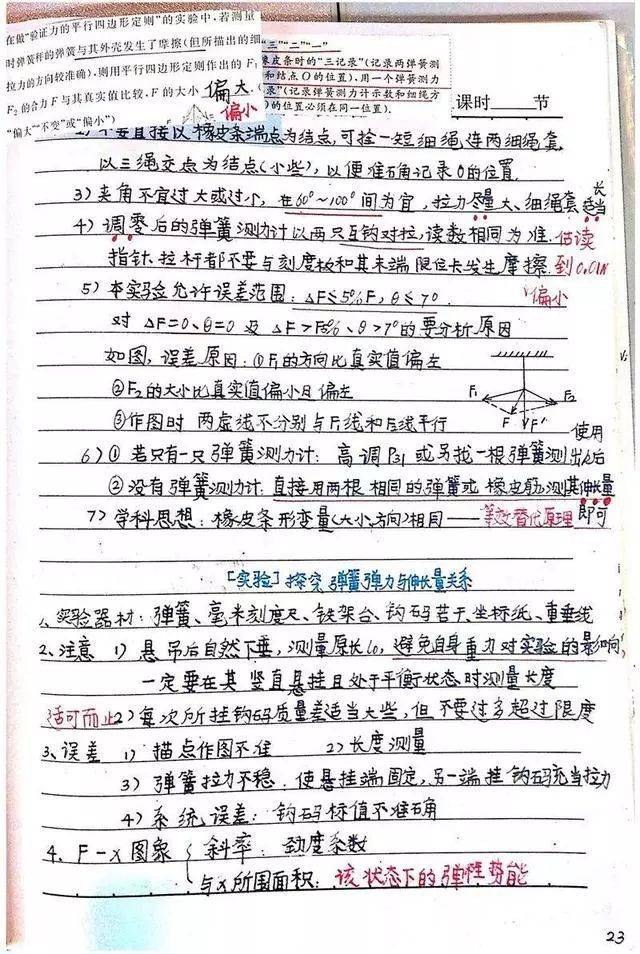 在做“验证力的平行四边形定则”的实验中,若测量
时弹簧秤的弹簧与其外壳发生了摩擦(但所描出的细
拉力的方向较准确),则用平行四边形定则作出的F₁
F₂的合力F与其真实值比较,F的大小 偏大.(
“偏大”“不变”或“偏小”)
偏小
“三”“二”“一”
橡皮条时的“三记录”(记录两弹簧测
和结点O的位置),用一个弹簧测力
录”(记录弹簧测力计示数和细绳方
)的位置必须在同一位置).
课时 节
不要直接以橡皮条端点为结点,可拴一短细绳连两细绳套
以三绳交点为结点(小些),以便准确记录O的位置
3) 夹角不宜过大或过小,在60°~100°间为宜,拉力尽量大、细绳套适当长
4) 调零后的弹簧测力计以两只互钩对拉,读数相同为准.估读
指针、拉杆都不要与刻度板和其末端限位卡发生摩擦 到0.01N
偏小
5) 本实验允许误差范围:ΔF≤5%F,θ≤7°.
对 ΔF=0、θ=0 及 ΔF>F5%、θ>7°的要分析原因
如图,误差原因:①F₁的方向比真实值偏左
②F₂的大小比真实值偏小且偏左
③作图时 两虚线不分别与F₁线和F₂线平行
F₁ F F′ F₂
6) ① 若只有一只弹簧测力计:高调P31 或另找一根弹簧测出k后使用
② 没有弹簧测力计:直接用两根相同的弹簧或橡皮筋,测其伸长量即可
7) 学科思想:橡皮条形变量(大小方向)相同——等效替代原理
[实验]探究弹簧弹力与伸长量关系
1、实验器材:弹簧、毫米刻度尺、铁架台、钩码若干、坐标纸、重垂线
2、注意 1) 悬吊后自然下垂,测量原长l₀,避免自身重力对实验的影响
一定要在其竖直悬挂且处于平衡状态时测量长度
适可而止 2) 每次所挂钩码质量差适当大些,但不要过多超过限度
3、误差 1) 描点作图不准 2) 长度测量
3) 弹簧拉力不稳.使悬挂端固定,另一端挂钩码充当拉力
4) 系统误差:钩码标值不准确
4、F-x图象 斜率:劲度系数
与x所围面积:该状态下的弹性势能
23